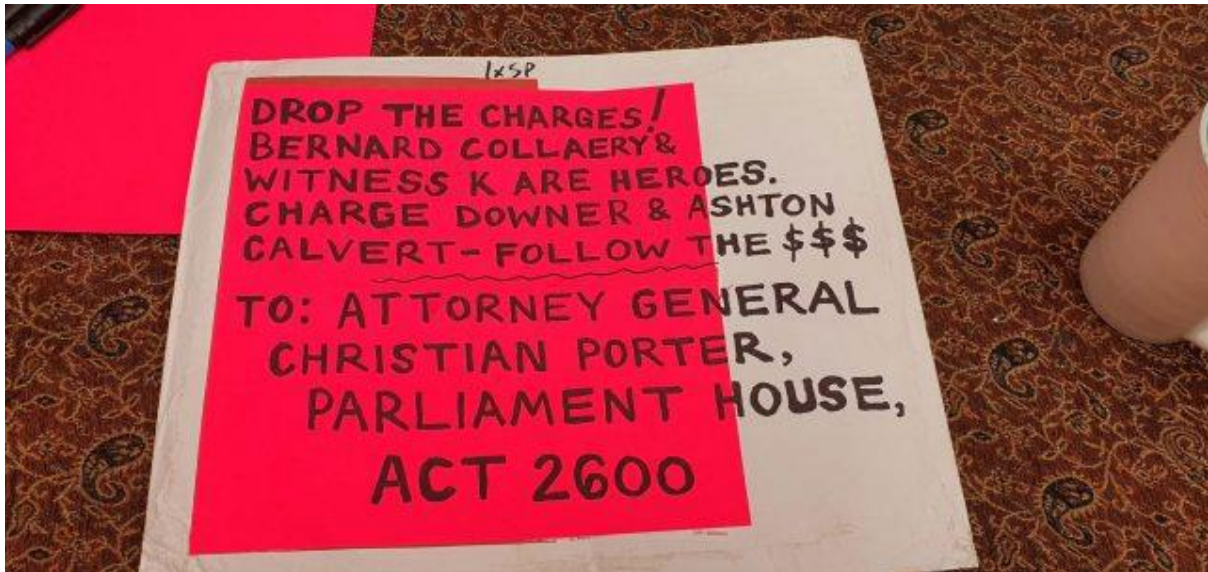 1xSP
DROP THE CHARGES!
BERNARD COLLAERY &
WITNESS K ARE HEROES.
CHARGE DOWNER & ASHTON
CALVERT - FOLLOW THE $$$
TO: ATTORNEY GENERAL
CHRISTIAN PORTER,
PARLIAMENT HOUSE,
ACT 2600